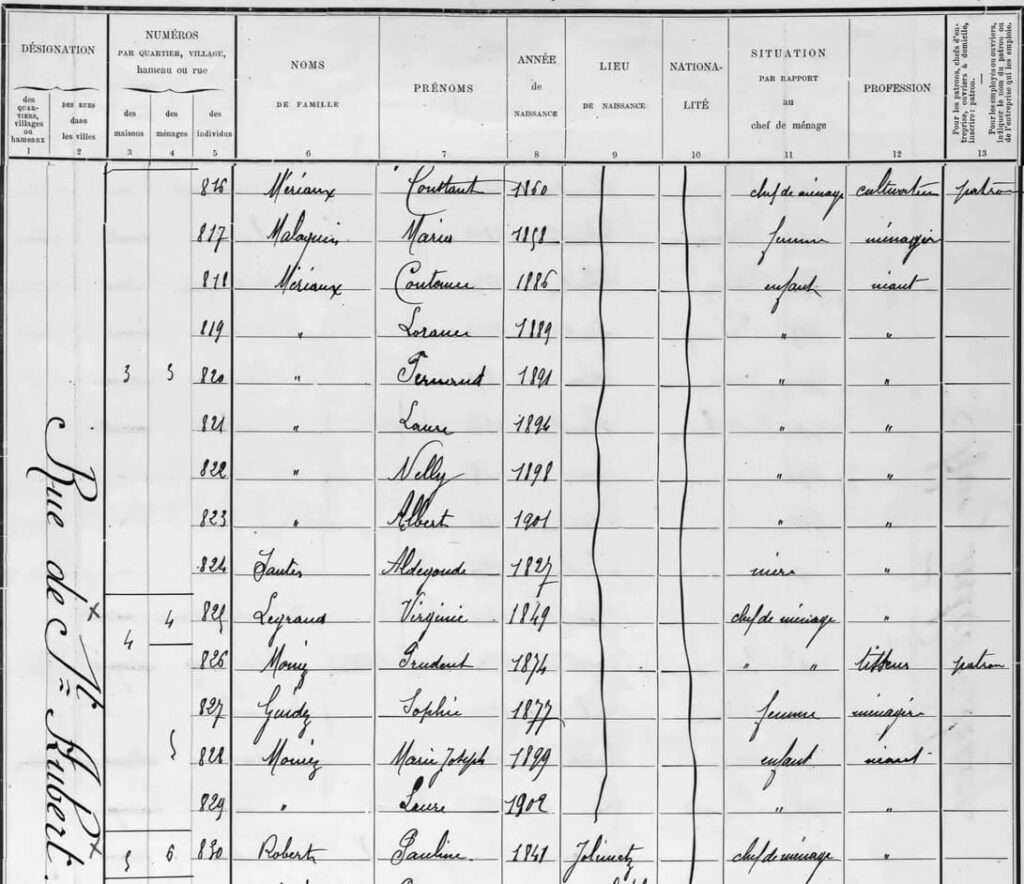 DÉSIGNATION
des QUARTIERS, villages ou hameaux
1
DES RUES dans les villes
2
NUMÉROS
PAR QUARTIER, VILLAGE,
hameau ou rue
des maisons
3
des ménages
4
des individus
5
NOMS
DE FAMILLE
6
PRÉNOMS
7
ANNÉE
de
NAISSANCE
8
LIEU
DE NAISSANCE
9
NATIONA-
LITÉ
10
SITUATION
PAR RAPPORT
au
chef de ménage
11
PROFESSION
12
Pour les patrons, chefs d'en-
treprise, ouvriers à domicile,
inscrire : patron.
—
Pour les employés ou ouvriers,
indiquer le nom du patron ou
de l'entreprise qui les emploie.
13
Rue de St Hubert.
816 Mériaux Constant 1860 chef de ménage cultivateur patron
817 Malaquin Maria 1858 femme ménagère
818 Mériaux 1886 enfant néant
819 " 1889 " "
3 3 820 " Fernand 1891 " "
821 " Laure 1894 " "
822 " Nelly 1898 " "
823 " Albert 1901 " "
824 Aldegonde 1827 mère "
4 4 825 Legrand Virginie 1849 chef de ménage "
826 Prudent 1874 " " tisseur patron
827 Guidez Sophie 1877 femme ménagère
5 828 Marie Joseph 1899 enfant néant
829 " Laure 1902 " "
5 6 830 Robert Pauline 1841 Jolimetz chef de ménage "